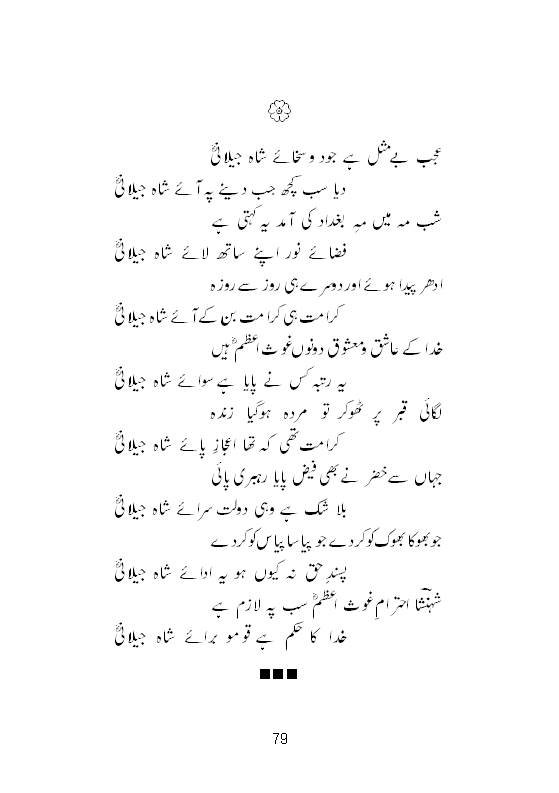 عجب بے مثل ہے جود و سخائے شاہ جیلانیؒ
دیا سب کچھ جب دینے پہ آئے شاہ جیلانیؒ
شب مہ میں مہِ بغداد کی آمد یہ کہتی ہے
فضائے نور اپنے ساتھ لائے شاہ جیلانیؒ
ادھر پیدا ہوئے اور دوسرے ہی روز سے روزہ
کرامت ہی کرامت بن کے آئے شاہ جیلانیؒ
خدا کے عاشق و معشوق دونوں غوث اعظمؒ ہیں
یہ رتبہ کس نے پایا ہے سوائے شاہ جیلانیؒ
لگائی قبر پر ٹھوکر تو مردہ ہوگیا زندہ
کرامت تھی کہ تھا اعجازِ پائے شاہ جیلانیؒ
جہاں سے خضر نے بھی فیض پایا رہبری پائی
بلا شک ہے وہی دولت سرائے شاہ جیلانیؒ
جو بھوکا بھوک کو کردے جو پیاسا پیاس کو کردے
پسندِ حق نہ کیوں ہو یہ ادائے شاہ جیلانیؒ
شہنشاؔ احترامِ غوث اعظمؒ سب پہ لازم ہے
خدا کا حکم ہے قومو برائے شاہ جیلانیؒ
79